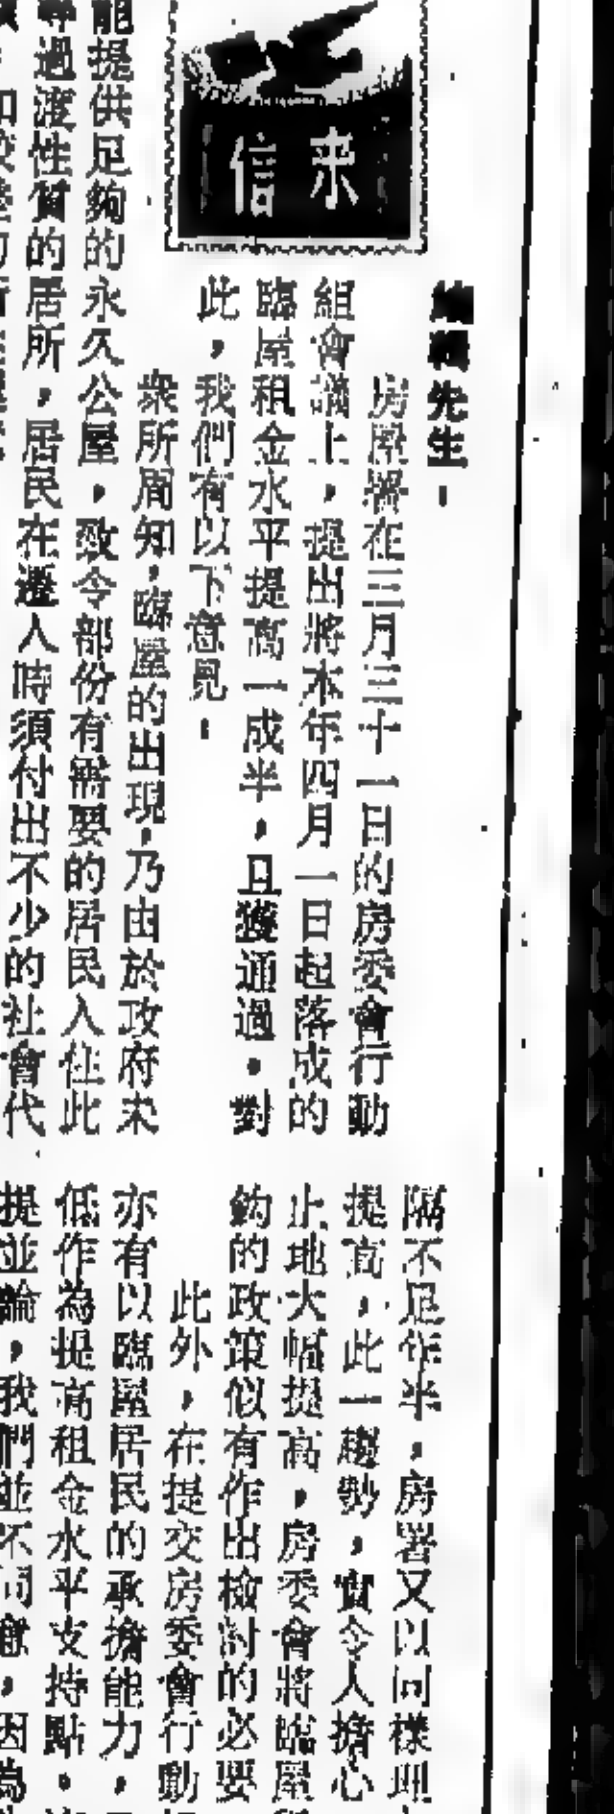 來信
編輯先生：
房屋署在三月三十一日的房委會行動
組會議上，提出將本年四月一日起落成的
臨屋租金水平提高一成半，且獲通過。對
此，我們有以下意見：
衆所周知，臨屋的出現，乃由於政府未
能提供足夠的永久公屋，致令部份有需要的居民入住此
過渡性質的居所，居民在遷入時須付出不少的社會代
隔不足年半，房署又以同樣理
提高，此一趨勢，實令人擔心
止地大幅提高，房委會將臨屋
鈎的政策似有作出檢討的必要
此外，在提交房委會行動
亦有以臨屋居民的承擔能力，
低作為提高租金水平支持點，
提並論，我們並不同意，因為